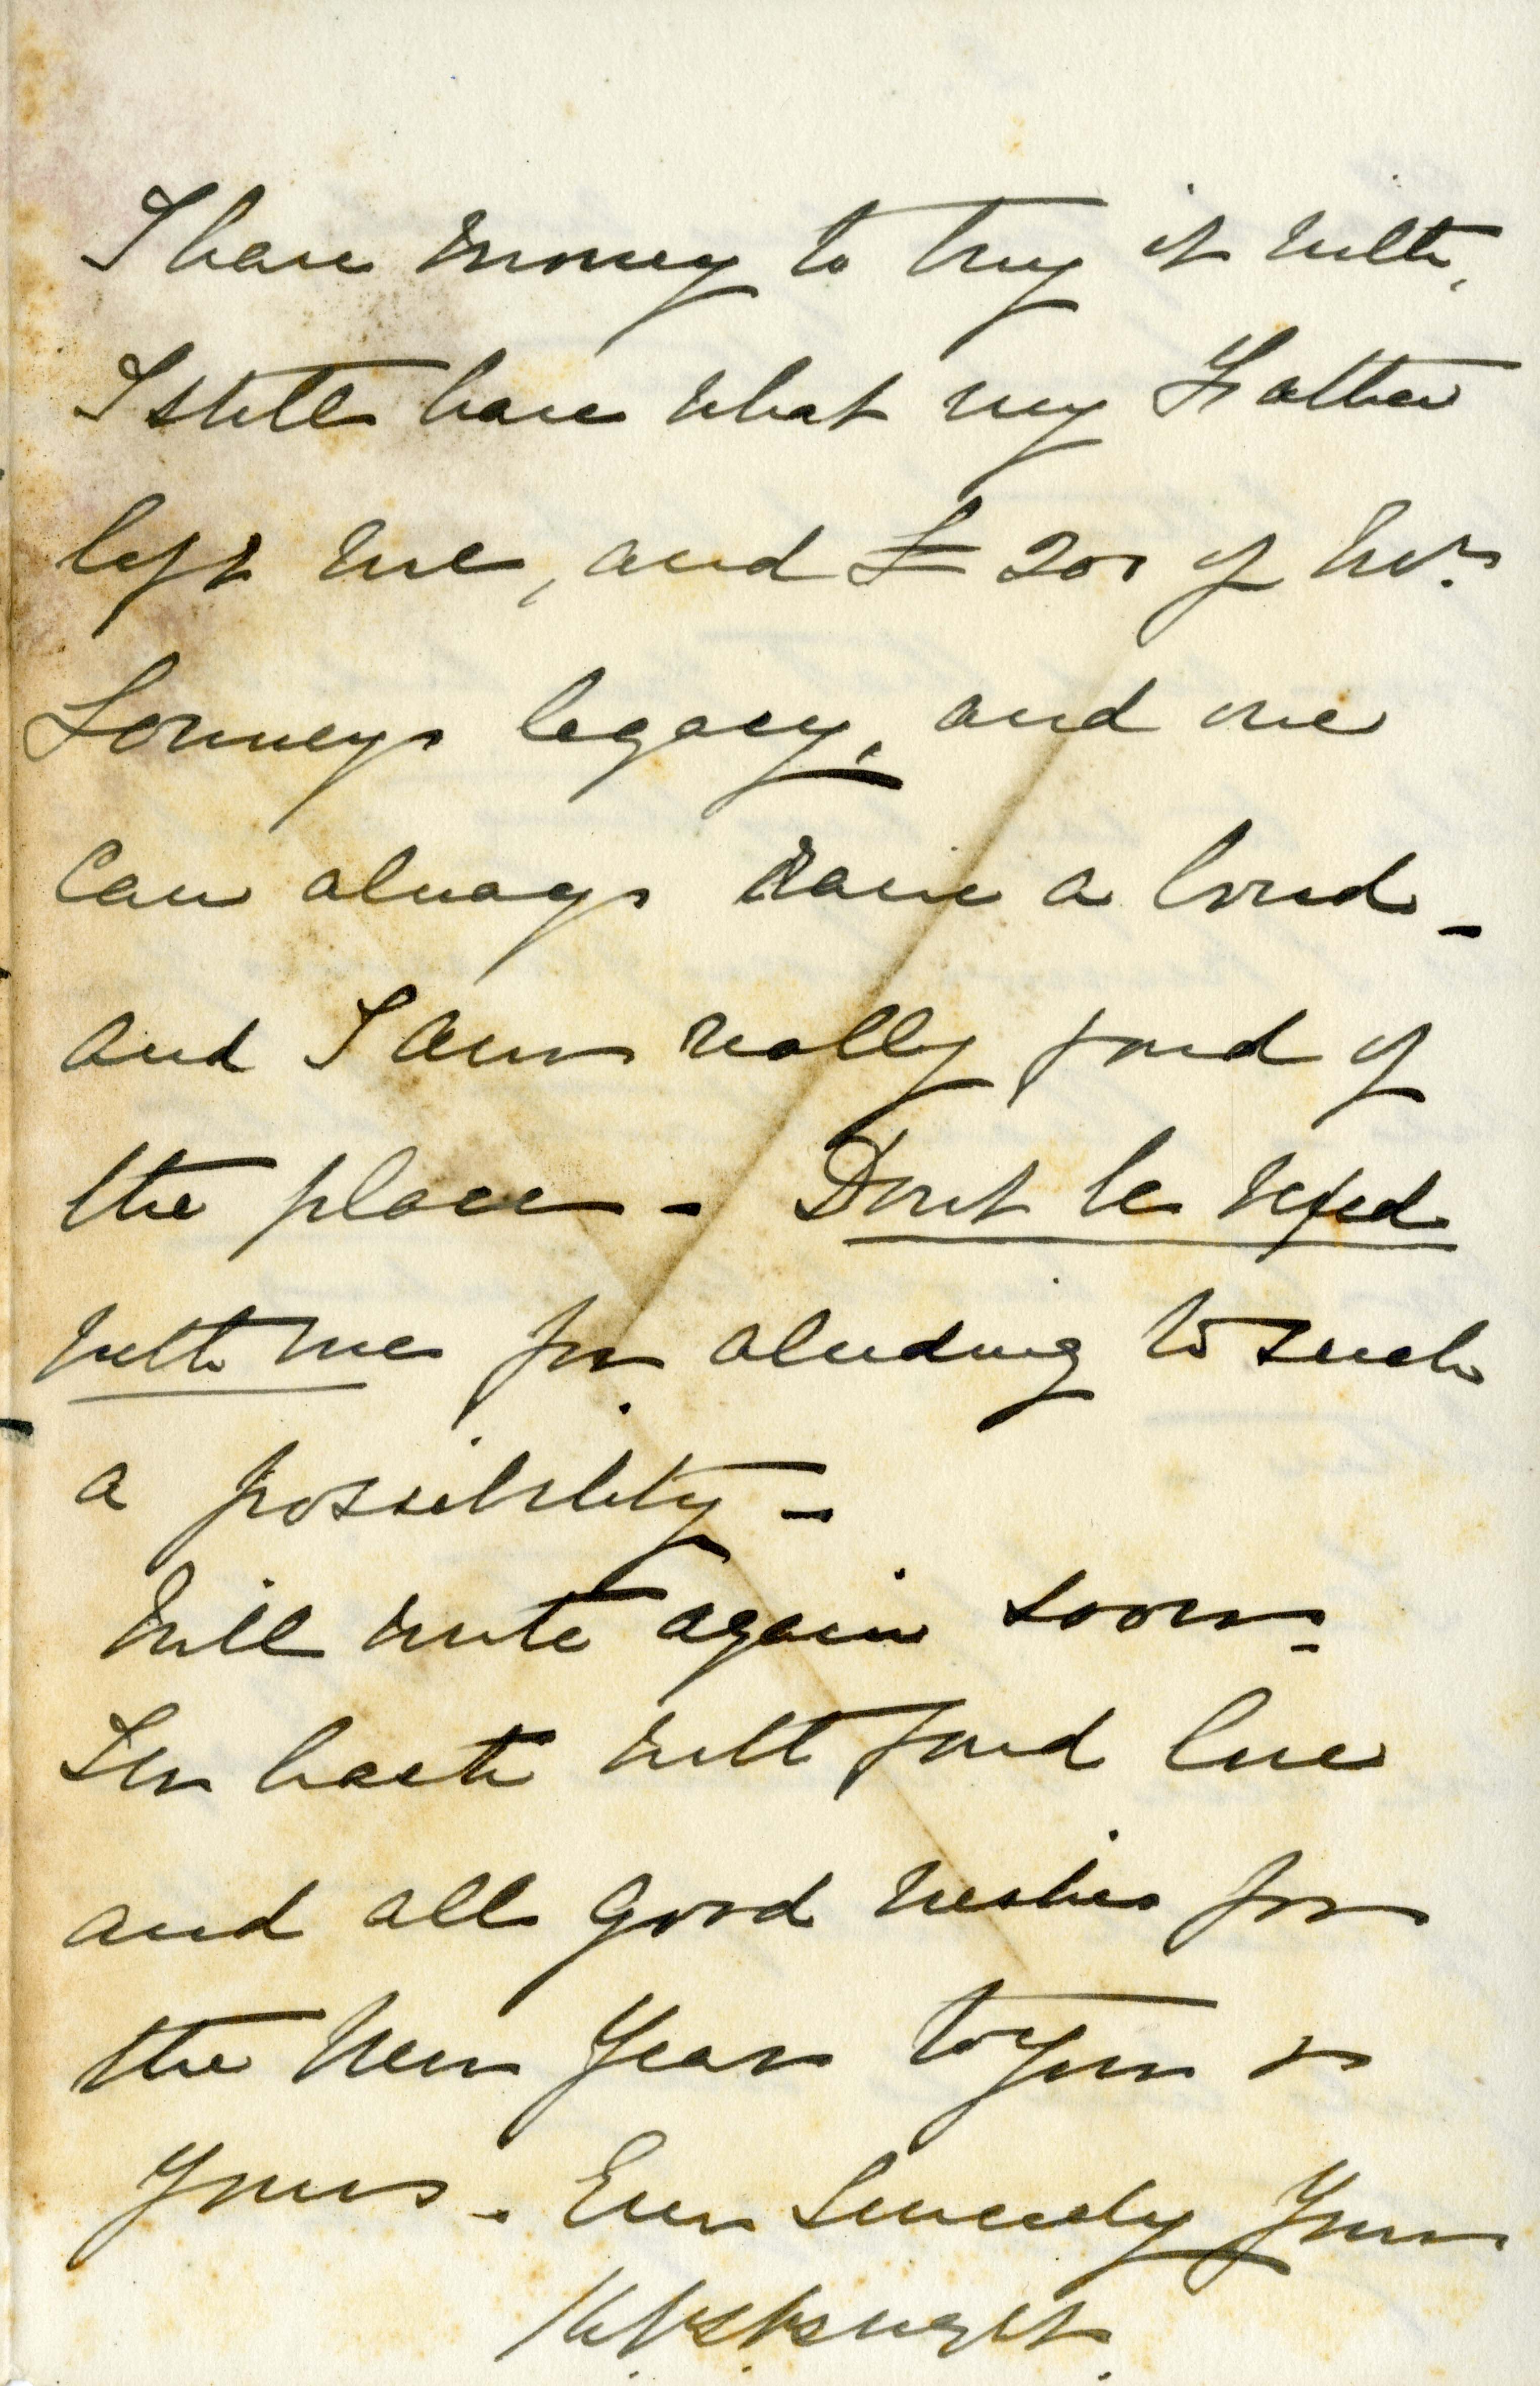 I have money to try it with,
I still have what my Father
left me, and £200 of Mrs.
legacy, and one
can always raise a loud -
and I am really fond of
the place - Dont be vexed
with me for aluding to such
a possibility -
Will write again soon -
In haste with fond love
and all good wishes for
the New Year to you &
yours. Ever Sincerely Yours